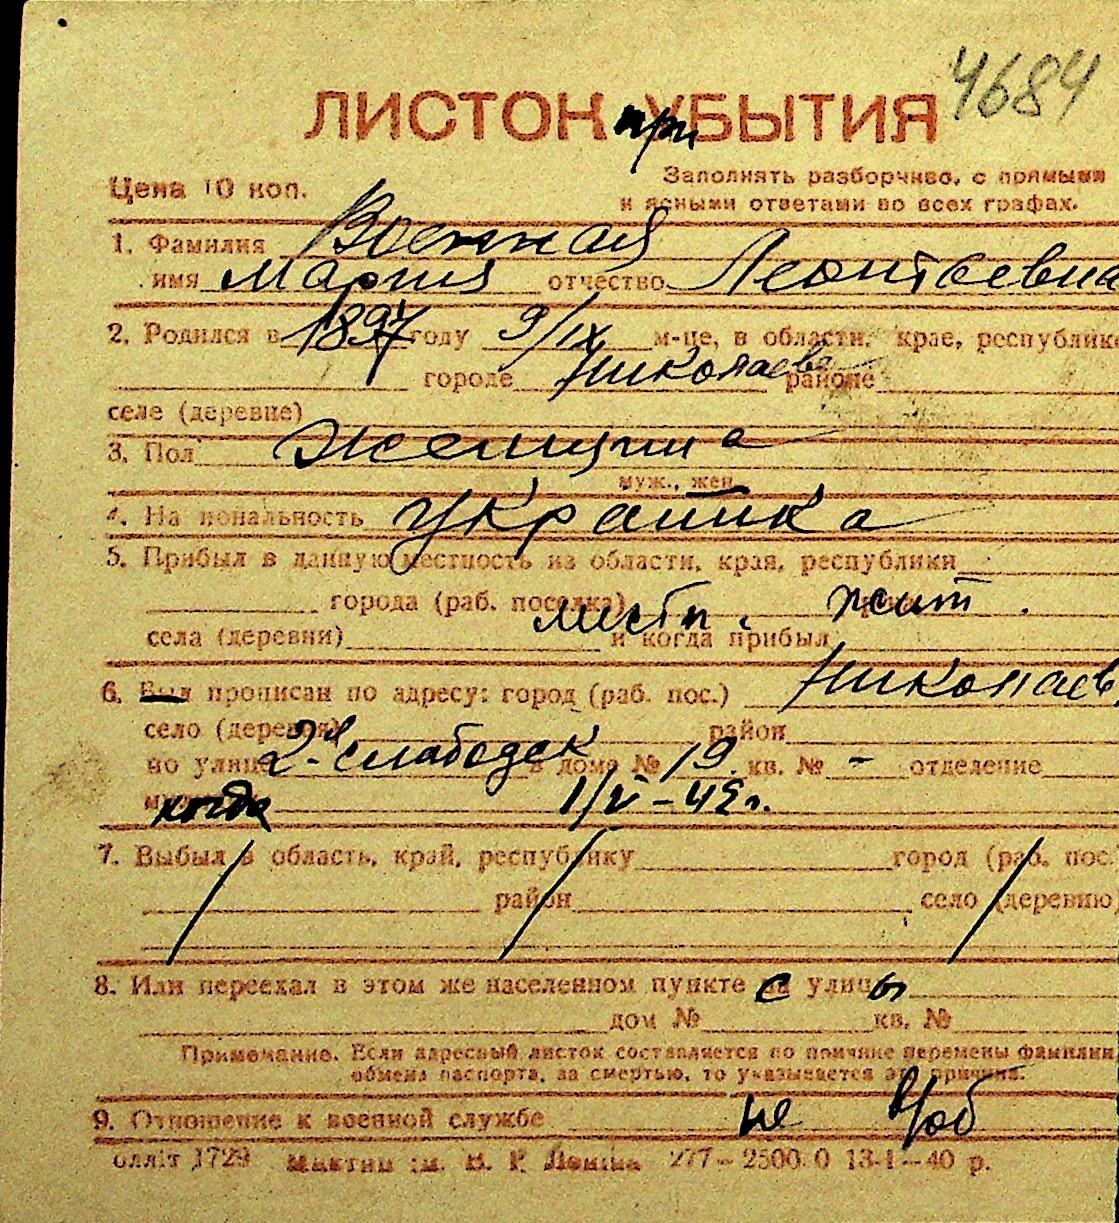 4684
ЛИСТОК при УБЫТИЯ
Цена 10 коп.
Заполнять разборчиво, с прямыми
и ясными ответами во всех графах.
1. Фамилия Военная
имя Мария отчество Леонтьевна
2. Родился в 1897 году 9/IX м-це, в области, крае, республике
городе Николаеве районе
селе (деревне)
3. Пол женщина
муж., жен.
4. Национальность украинка
5. Прибыл в данную местность из области, края, республики
города (раб. поселка) местн. жит.
села (деревни) и когда прибыл
6. Был прописан по адресу: город (раб. пос.) Николаев
село (деревня) район
по улице 2-я слободск в доме № 19 кв. № – отделение
когда 1/VI-42г.
7. Выбыл в область, край, республику город (раб. пос.
район село (деревню
8. Или переехал в этом же населенном пункте с улицы
дом № кв. №
Примечание. Если адресный листок составляется по причине перемены фамилии,
обмена паспорта, за смертью, то указывается эта причина.
9. Отношение к военной службе не в/об
оллiт 1729 им. В. I. Ленiна 277–2500.0 13-1–40 р.